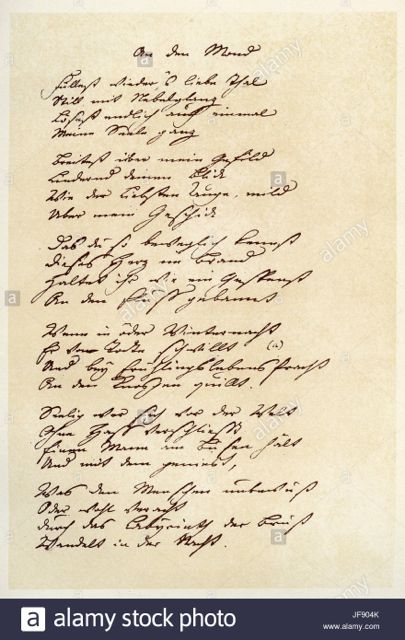 An den Mond
Füllest wieder's liebe Thal
Still mit Nebelglanz
Lösest endlich auch einmal
Meine Seele ganz
Breitest über mein Gefild
Lindernd deinen Blick
Wie der Liebsten Auge, mild
Über mein Geschick
Das du so beweglich kennst
Dieses Herz im Brand
Haltet ihr wie ein Gespenst
An den Fluß gebannt
Wenn in öder Winternacht
Er vom Todte schwillt (a)
Und bey Frühlingslebens Pracht
An den Knospen quillt.
Seelig wer sich vor der Welt
Ohne Haß verschließt
Einen Mann am Busen hält
Und mit dem genießt,
Was den Menschen unbewußt
Oder wohl veracht
Durch das Labyrinth der Brust
Wandelt in der Nacht.
alamy stock photo
JF904K
www.alamy.com